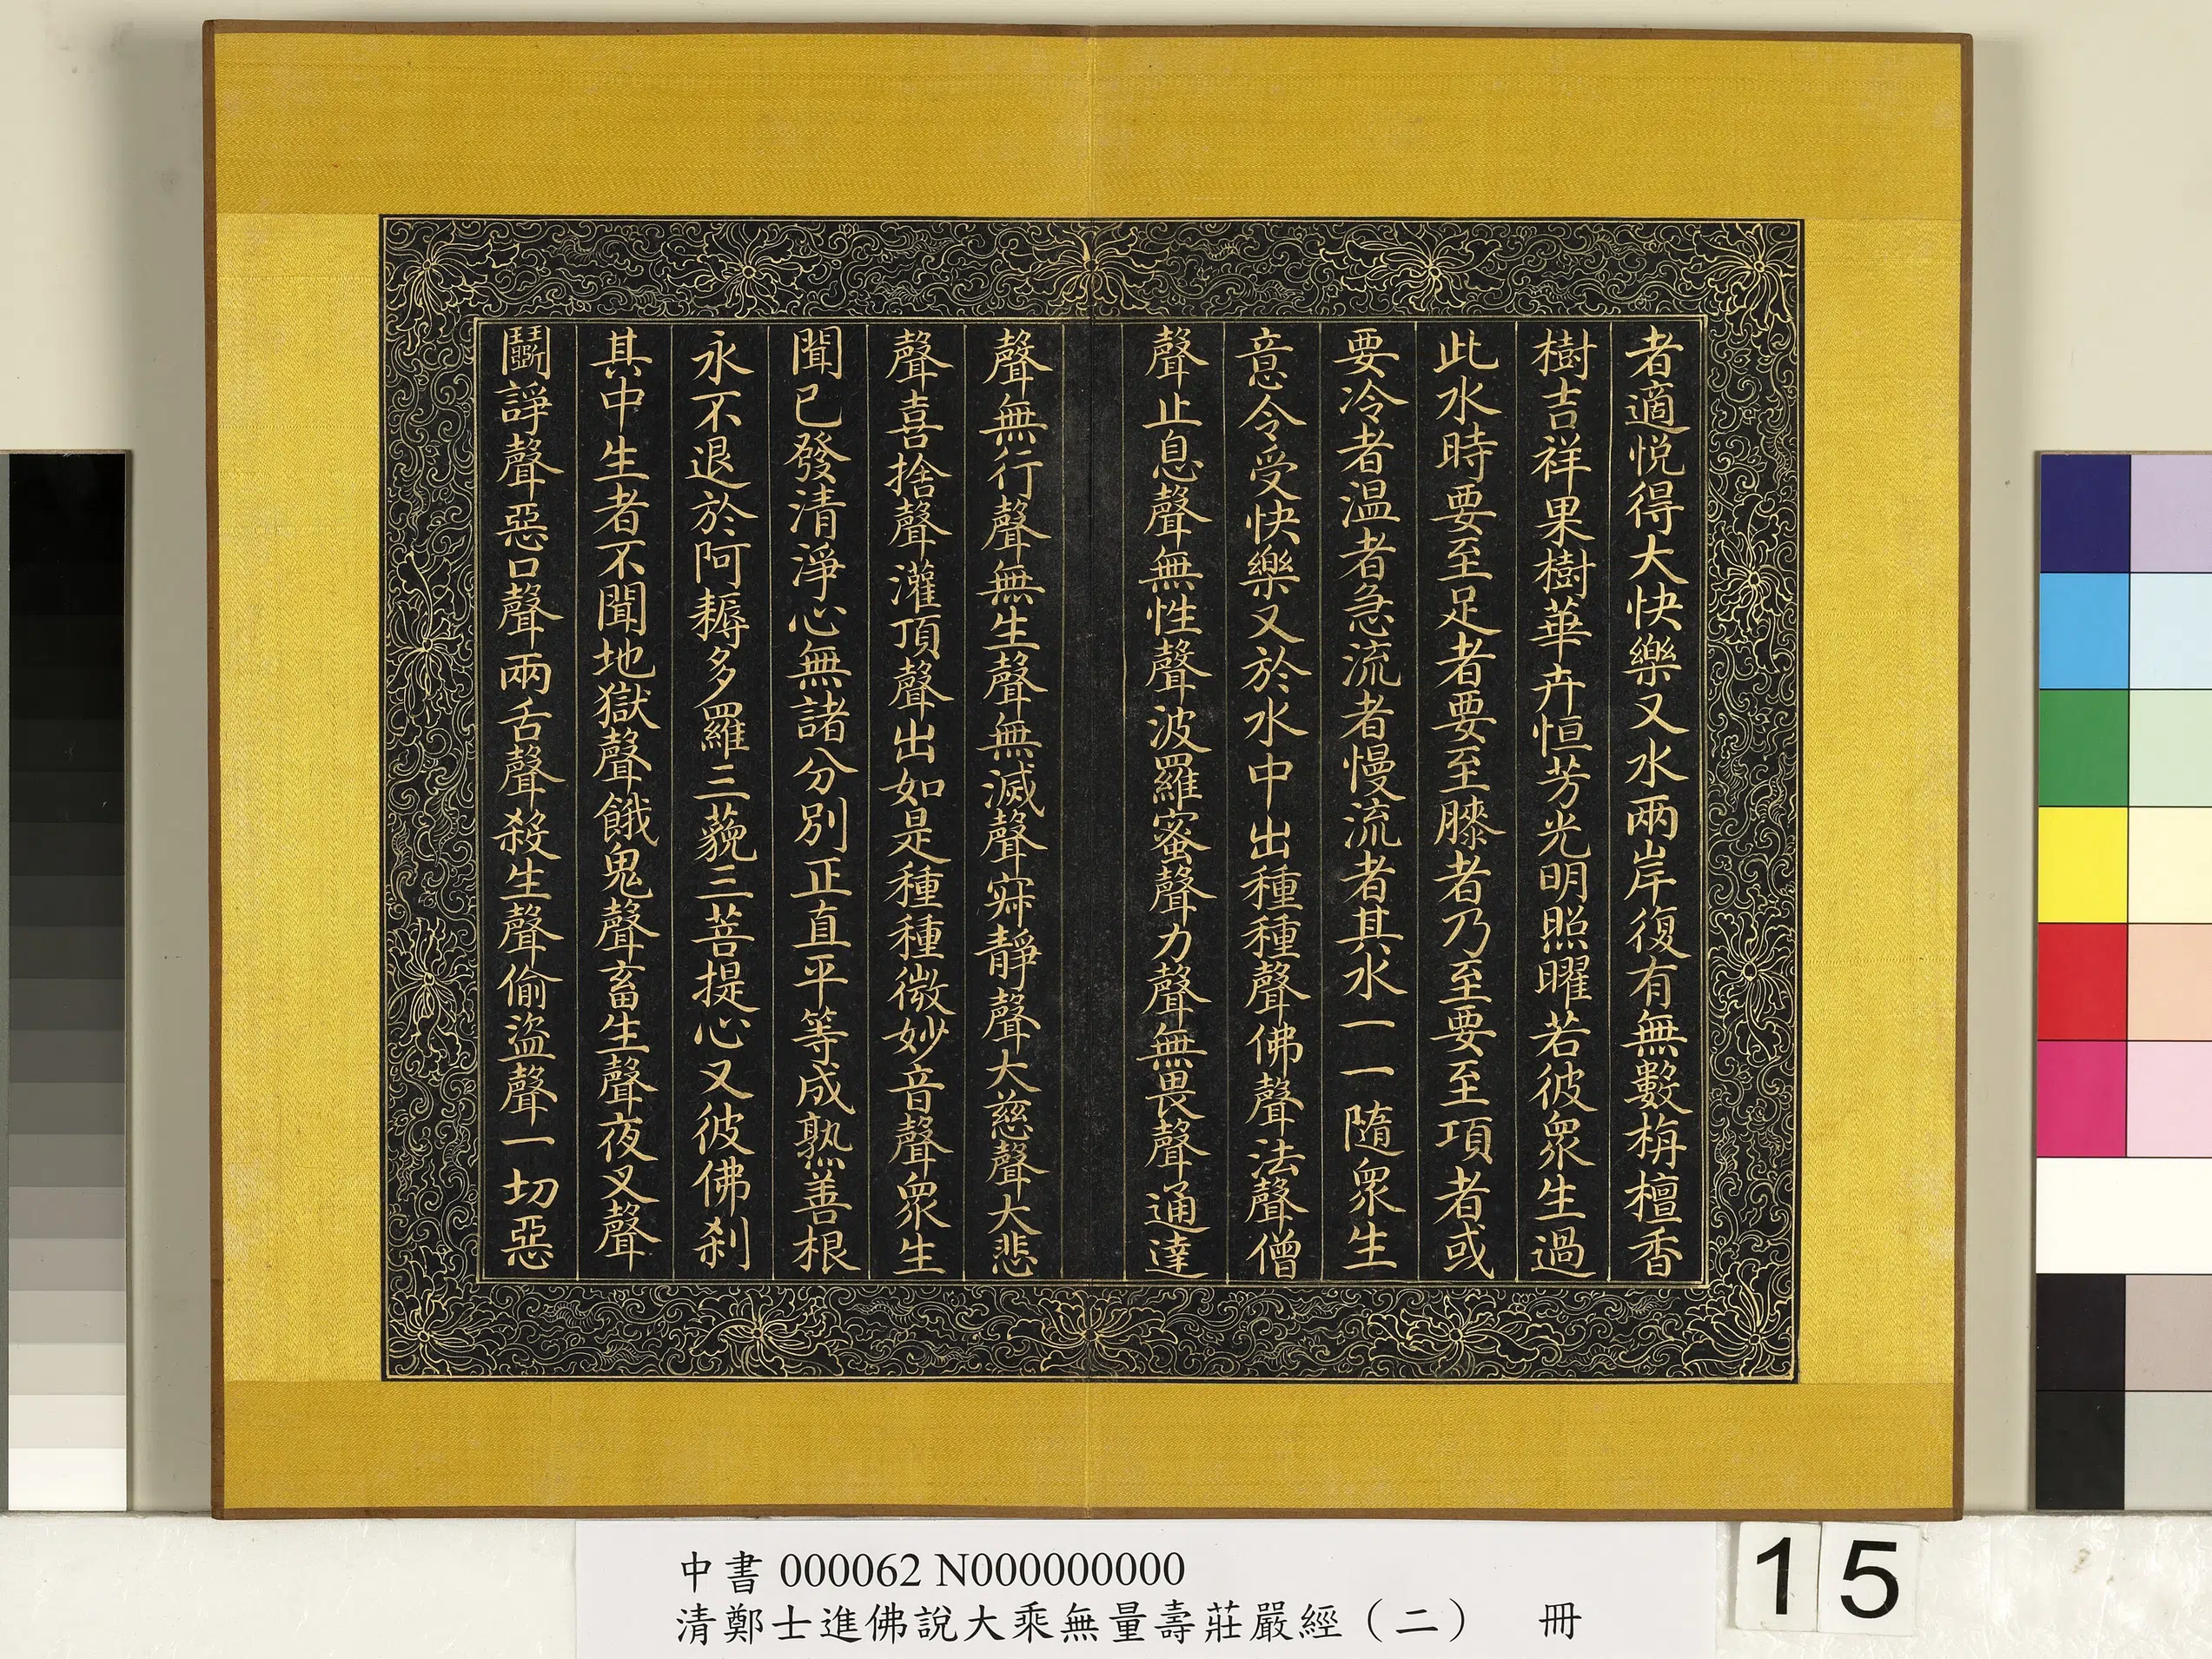 者適悅得大快樂又水兩岸復有無數栴檀香
樹吉祥果樹華卉恒芳光明照曜若彼眾生過
此水時要至足者要至膝者乃至要至項者或
要冷者温者急流者慢流者其水一一隨眾生
意令受快樂又於水中出種種聲佛聲法聲僧
聲止息聲無性聲波羅蜜聲力聲無畏聲通達
聲無行聲無生聲無滅聲寂靜聲大慈聲大悲
聲喜捨聲灌頂聲出如是種種微妙音聲眾生
聞已發清淨心無諸分別正直平等成熟善根
永不退於阿耨多羅三藐三菩提心又彼佛剎
其中生者不聞地獄聲餓鬼聲畜生聲夜叉聲
鬭諍聲惡口聲兩舌聲殺生聲偷盜聲一切惡
中書 000062 N000000000
清鄭士進佛說大乘無量壽莊嚴經（二） 冊
15